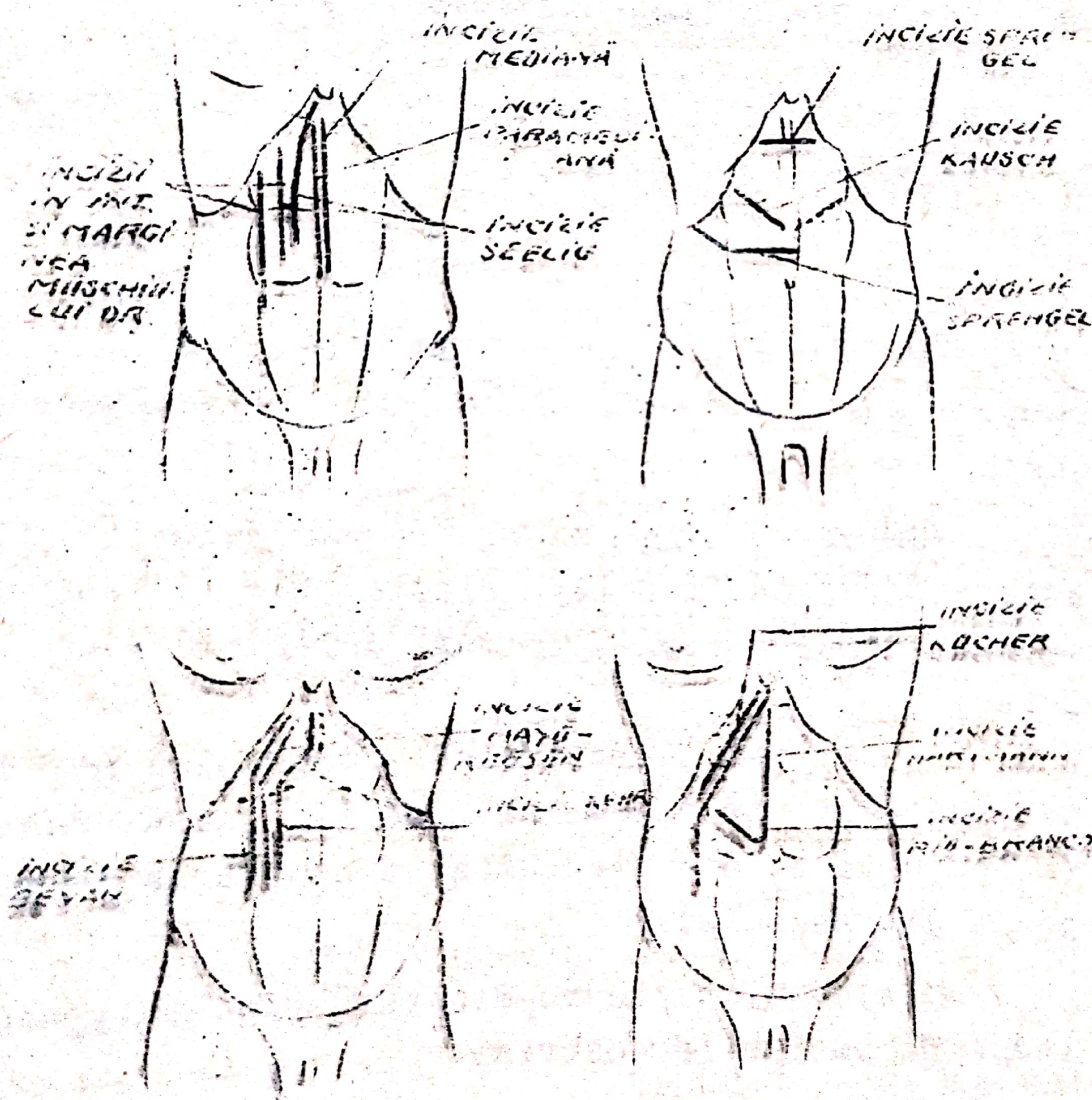 INCIZIE
MEDIANĂ
INCIZIE
PARAMEDI-
ANĂ
INCIZIE
SEELIG
INCIZII
IN INT.
SI MARGI
NEA
MUSCHIU-
LUI DR.
INCIZIE SPREN
GEL
INCIZIE
KAUSCH
INCIZIE
SPRENGEL
INCIZIE
MAYO-
ROBSON
INCIZIE KEHR
INCIZIE
BEVAN
INCIZIE
KOCHER
INCIZIE
HARTMANN
INCIZIE
RIO-BRANCO